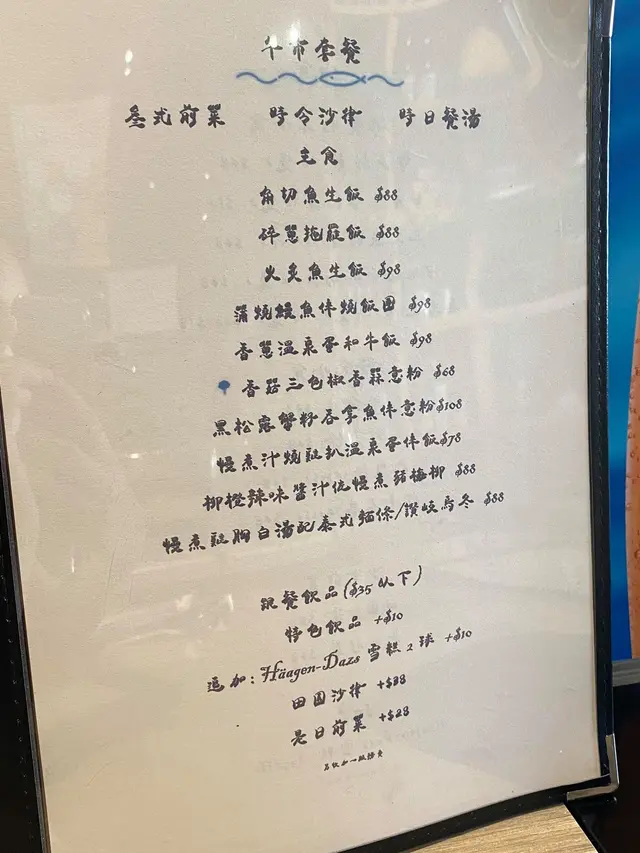 午市套餐
是式前菜 時令沙律 時日餐湯
主食
角切魚生飯 $88
碎蔥拖羅飯 $88
火炙魚生飯 $98
蒲燒鰻魚伴燒飯團 $98
香蔥溫泉蛋和牛飯 $98
香菇三色椒香蒜意粉 $68
黑松露蟹籽吞拿魚伴意粉 $108
慢煮汁燒雞扒溫泉蛋伴飯 $78
柳橙辣味醬汁伴慢煮豬梅柳 $88
慢煮雞胸白湯配泰式麵條/讚岐烏冬 $88
跟餐飲品 ($35 以下)
特色飲品 +$10
追加：Häagen-Dazs 雪糕 2 球 +$10
田園沙律 +$38
是日前菜 +$28
另收加一服務費